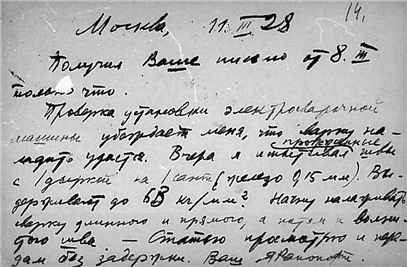 14.
Москва, 11. III 28
Получил Ваше письмо от 8. III
только что.
Проверка установки электросварочной
машины убеждает меня, что сварку на-
ладить удастся. Вчера я испытывал швы
с 1 на 1 сант (железо 0,15 мм). Вы-
держивает до 6 кг/мм². Начну налаживать
сварку длинного и прямого, а потом и волни-
того шва — Статью просмотрю и пере-
дам без задержки. Ваш